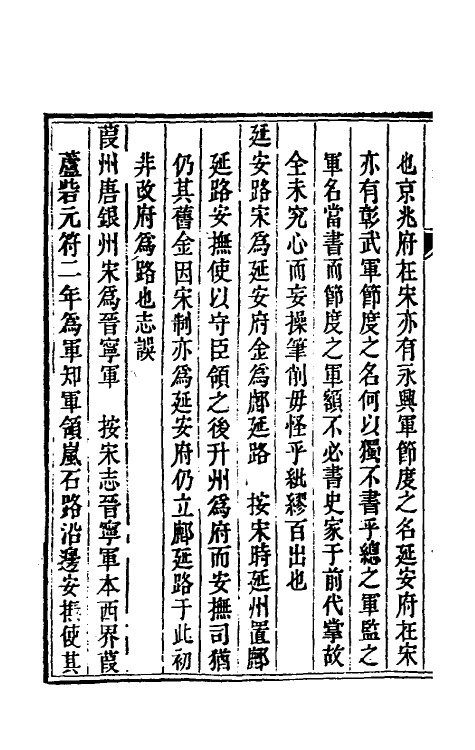 也京兆府在宋亦有永興軍節度之名延安府在宋
亦有彰武軍節度之名何以獨不書乎總之軍監之
軍名當書而節度之軍額不必書史家于前代掌故
全未究心而妄操筆削毋怪乎紕繆百出也
延安路宋為延安府金為鄜延路　按宋時延州置鄜
延路安撫使以守臣領之後升州為府而安撫司猶
仍其舊金因宋制亦為延安府仍立鄜延路于此初
非改府為路也志誤
葭州唐銀州宋為晉寧軍　按宋志晉寧軍本西界葭
蘆砦元符二年為軍知軍領嵐石路沿邊安撫使其